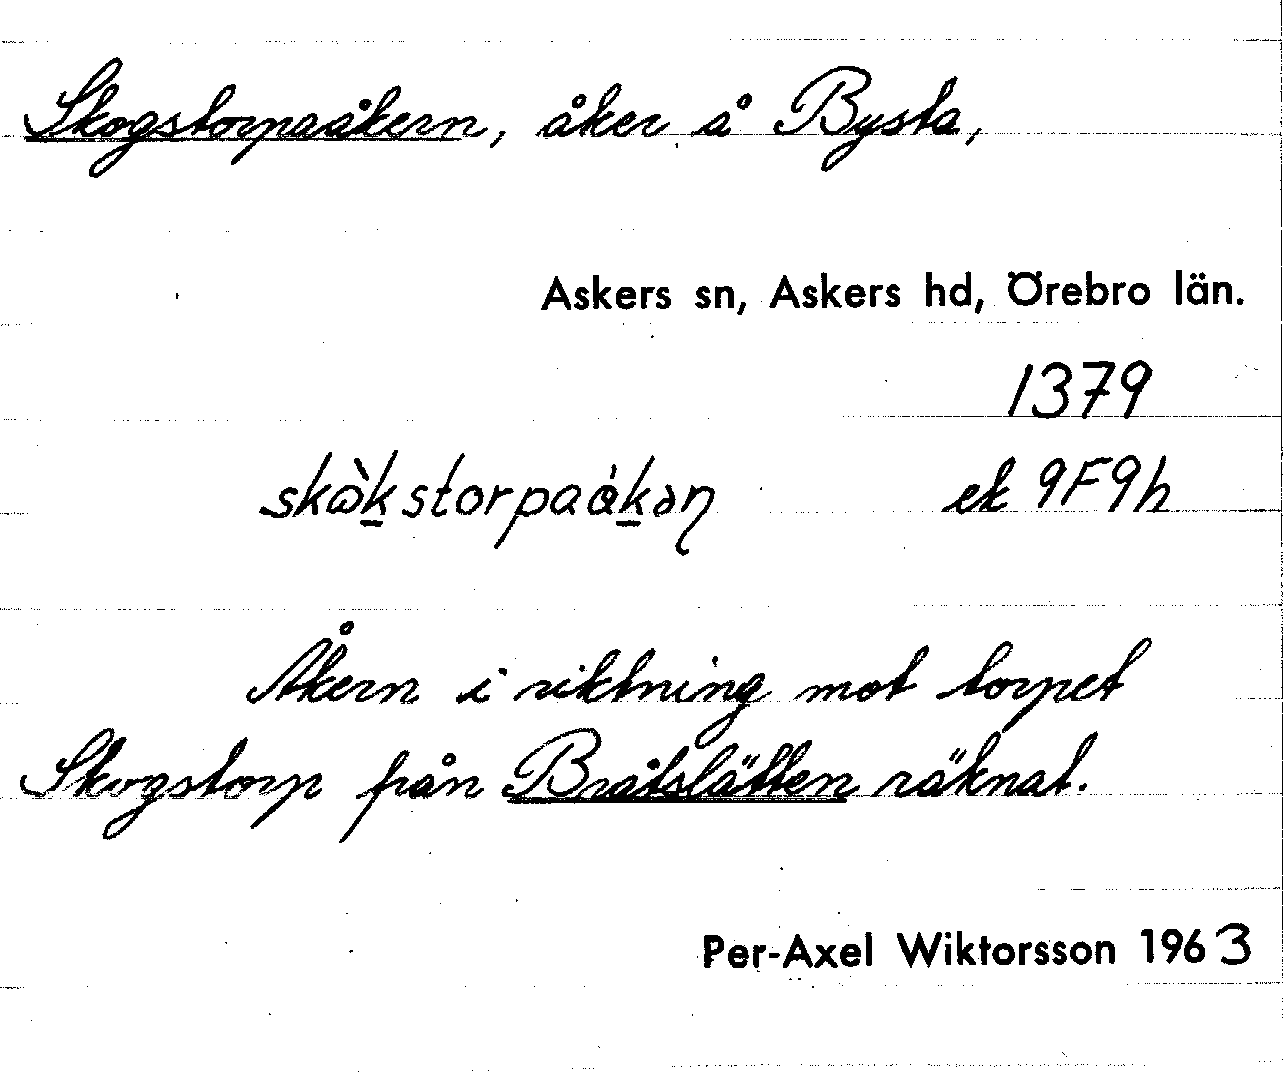 Skogstorpaåkern, åker å Bysta,
Askers sn, Askers hd, Örebro län.
1379
skὼk̲storpaå̀k̲əɳ ek 9F9h
Åkern i riktning mot torpet
Skogstorp från Bråtslätten räknat.
Per-Axel Wiktorsson 1963